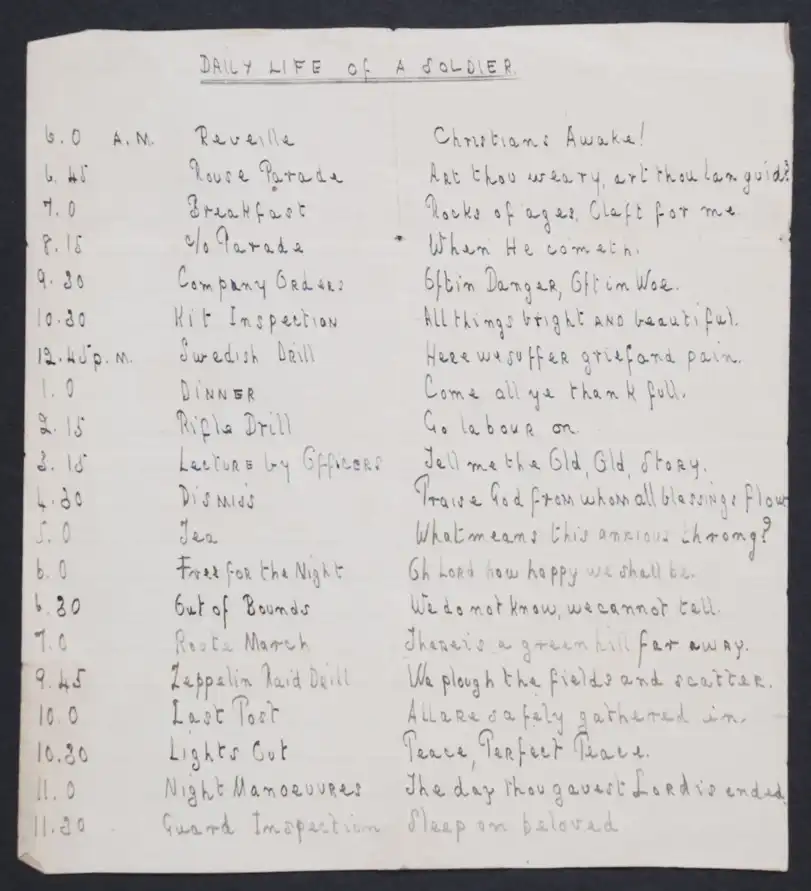 DAILY LIFE of A SOLDIER.
6.0 A.M. Reveille Christians Awake!
6.45 Rouse Parade Art thou weary, art thou languid?
7.0 Breakfast Rocks of ages, Cleft for me.
8.15 c/o Parade When He cometh.
9.30 Company Orders Oft in Danger, Oft in Woe.
10.30 Kit Inspection All things bright AND beautiful.
12.45 p.m. Swedish Drill Here we suffer grief and pain.
1.0 DINNER Come all ye thankfull.
2.15 Rifle Drill Go labour on
3.15 Lecture by Officers Tell me the Old, Old, Story.
4.30 Dismiss Praise God from whom all blessings flow
5.0 Tea What means this anxious throng?
6.0 Free for the Night Oh Lord how happy we shall be.
6.30 Out of Bounds We do not know, we cannot tell.
7.0 Route March There is a green hill far away.
9.45 Zeppelin Raid Drill We plough the fields and scatter.
10.0 Last Post All are safely gathered in.
10.30 Lights Out Peace, Perfect Peace.
11.0 Night Manoeuvres The day thou gavest Lord is ended
11.30 Guard Inspection Sleep on beloved